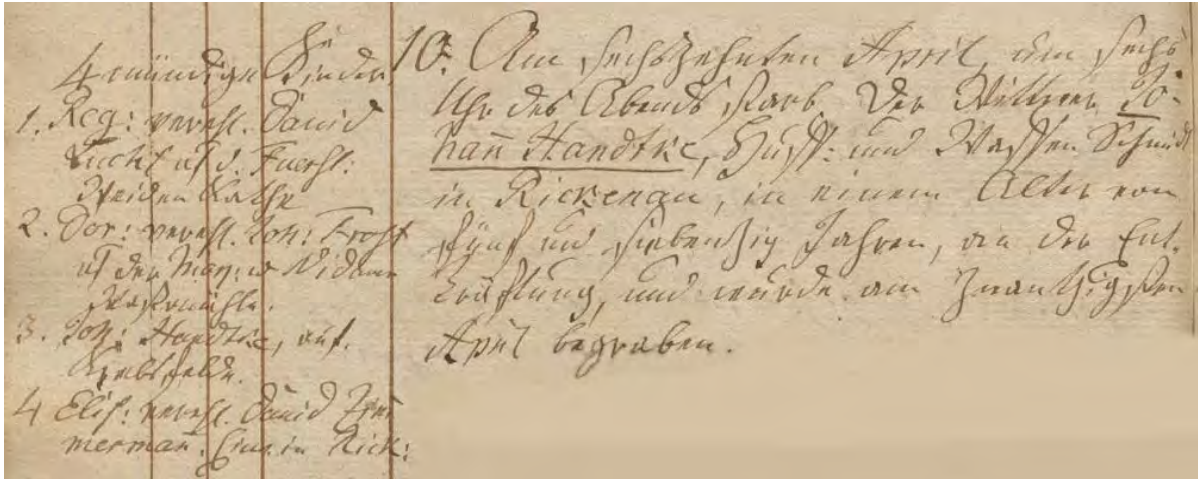 4 mündige Kinder
1. Reg: verehl. David
auf d. Fuerst:
Weiden Kathe
2. Dor: verehl. Joh: Frost
uf der
3. Joh: Handtke, auf.
Krebsfelde.
4 Elis: verehl. David Zim
merman̄. Einw. in Rick:
10. Am sechszehnten April, um sechs
Uhr des Abends starb, der Wittwer Jo-
han̄ Handtke, Huff- und Waffen Schmidt
in Rickenau, in einem Alter von
fünf und siebenzig Jahren, an der Ent-
kräftung, und wurde am zwantzigsten
April begraben.